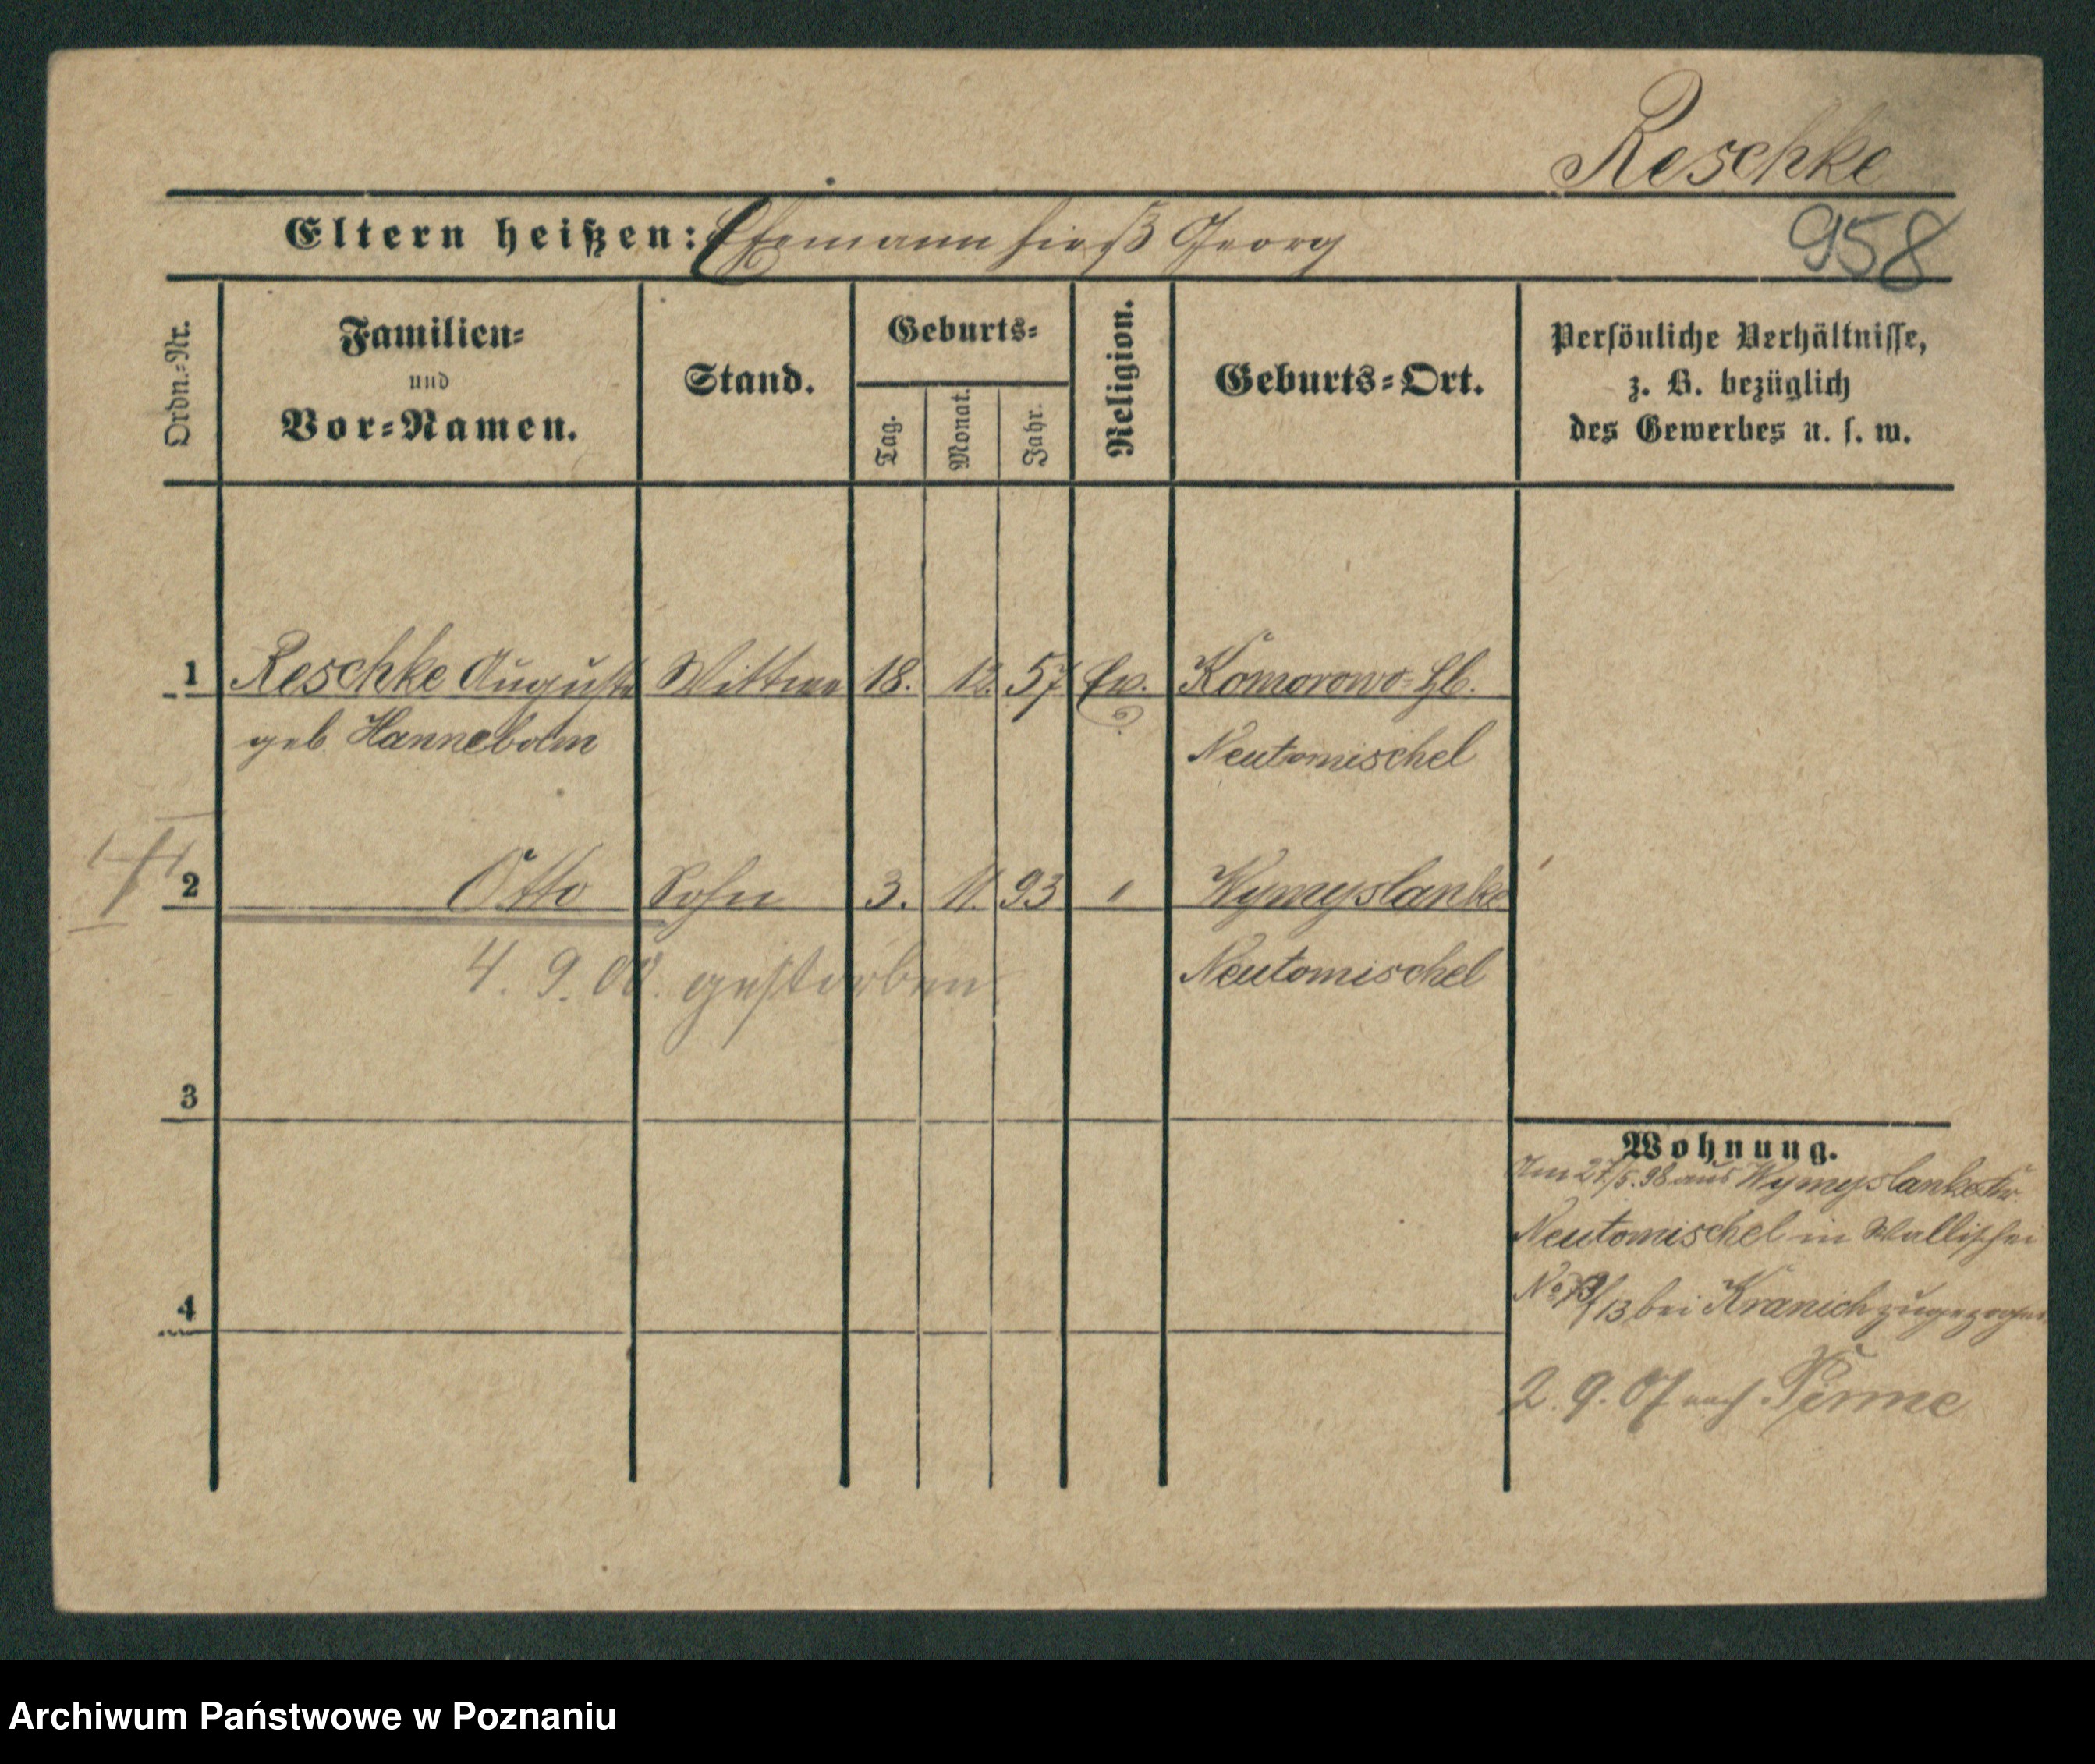 Reschke
Eltern heißen: Ehemann hieß Georg
958
Ordn.-Nr.
Familien-
und
Vor-Namen.
Stand.
Geburts-
Tag.
Monat.
Jahr.
Religion.
Geburts-Ort.
Persönliche Verhältnisse,
z. B. bezüglich
des Gewerbes u. s. w.
1 Reschke Auguste Wittwe 18. 12. 57 Ev. Komorowo Hl.
geb. Hannebohm Neutomischel
2 Otto Sohn 3. 11. 93 " Wymyslanke
4. 9. 00. gestorben Neutomischel
3
4
Wohnung.
Am 27/5. 98 aus Wymyslanke Kr.
Neutomischel in Wallischei
No /13 bei Kranich zugezogen
2. 9. 07 nach Pinne
Archiwum Państwowe w Poznaniu